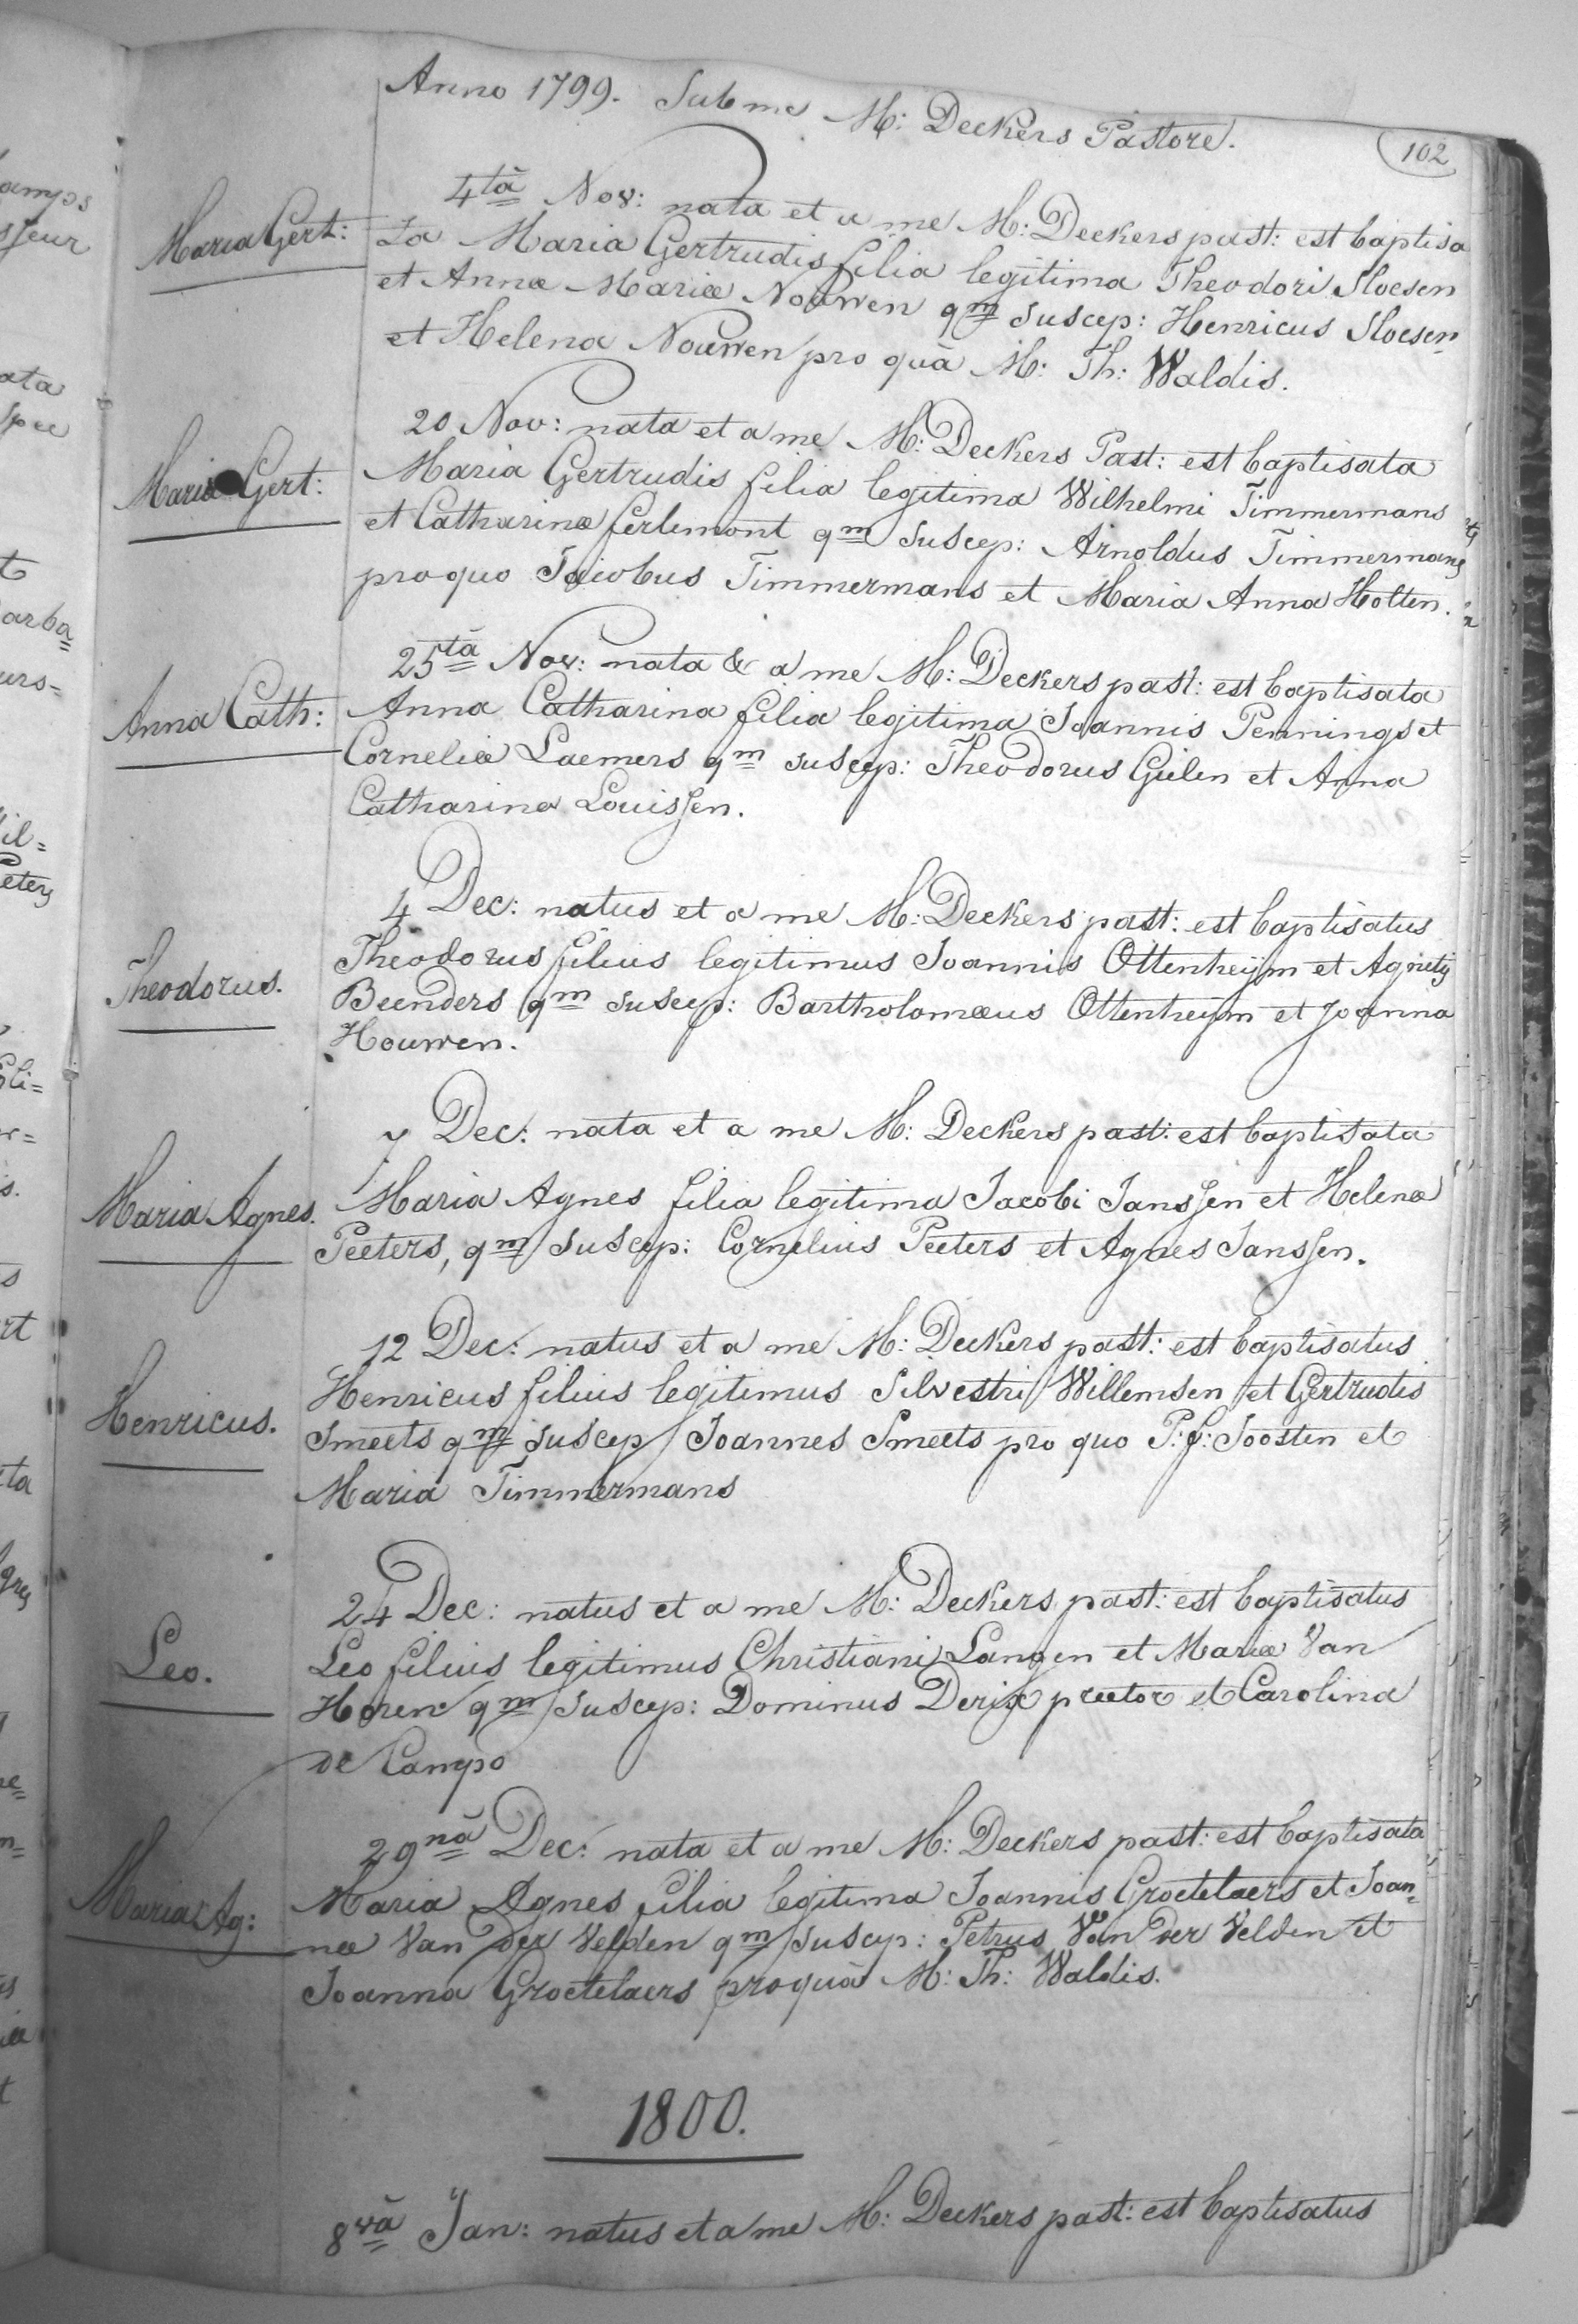 Anno 1799. Sub me M: Deckers Pastore.
102
Maria Gert:
4tâ Nov: nata et a me M: Deckers past: est baptisa
ta Maria Gertrudis filia legitima Theodori Sloesen
et Annæ Mariæ Nouwen qm suscep: Henricus Sloesen
et Helena Nouwen pro quâ M: Th: Waldis.
Maria Gert:
20 Nov: nata et a me M: Deckers Past: est baptisata
Maria Gertrudis filia legitima Wilhelmi Timmermans
et Catharinæ ferlemont qm suscep: Arnoldus Timmermans
pro quo Jacobus Timmermans et Maria Anna Holten.
Anna Cath:
25tâ Nov: nata & a me M: Deckers past: est baptisata
Anna Catharina filia legitima Joannis Pennings et
Corneliæ Laemers qm suscep: Theodorus Gielen et Anna
Catharina Louissen.
Theodorus.
4 Dec: natus et a me M: Deckers past: est baptisatus
Theodorus filius legitimus Joannis Ottenheijm et Agnetis
Beenders qm suscep: Bartholomæus Ottenheijm et Joanna
Houwen.
Maria Agnes.
7 Dec: nata et a me M: Deckers past: est baptisata
Maria Agnes filia legitima Jacobi Janssen et Helenæ
Peeters, qm suscep: Cornelius Peeters et Agnes Janssen.
Henricus.
12 Dec: natus et a me M: Deckers past: est baptisatus
Henricus filius legitimus Silvestri Willemsen et Gertrudis
Smeets qm suscep Joannes Smeets pro quo P: J: Joosten et
Maria Timmermans
Leo.
24 Dec: natus et a me M: Deckers past: est baptisatus
Leo filius legitimus Christiani Langen et Mariæ Van
Horen qm suscep: Dominus Derix prætor et Carolina
de Campo
Maria Ag:
29nâ Dec: nata et a me M: Deckers past: est baptisata
Maria Agnes filia legitima Joannis Groetelaers et Joan=
næ Van der Velden qm suscep: Petrus Van der Velden et
Joanna Groetelaers pro quâ M: Th: Waldis.
1800.
8vâ Jan: natus et a me M: Deckers past: est baptisatus